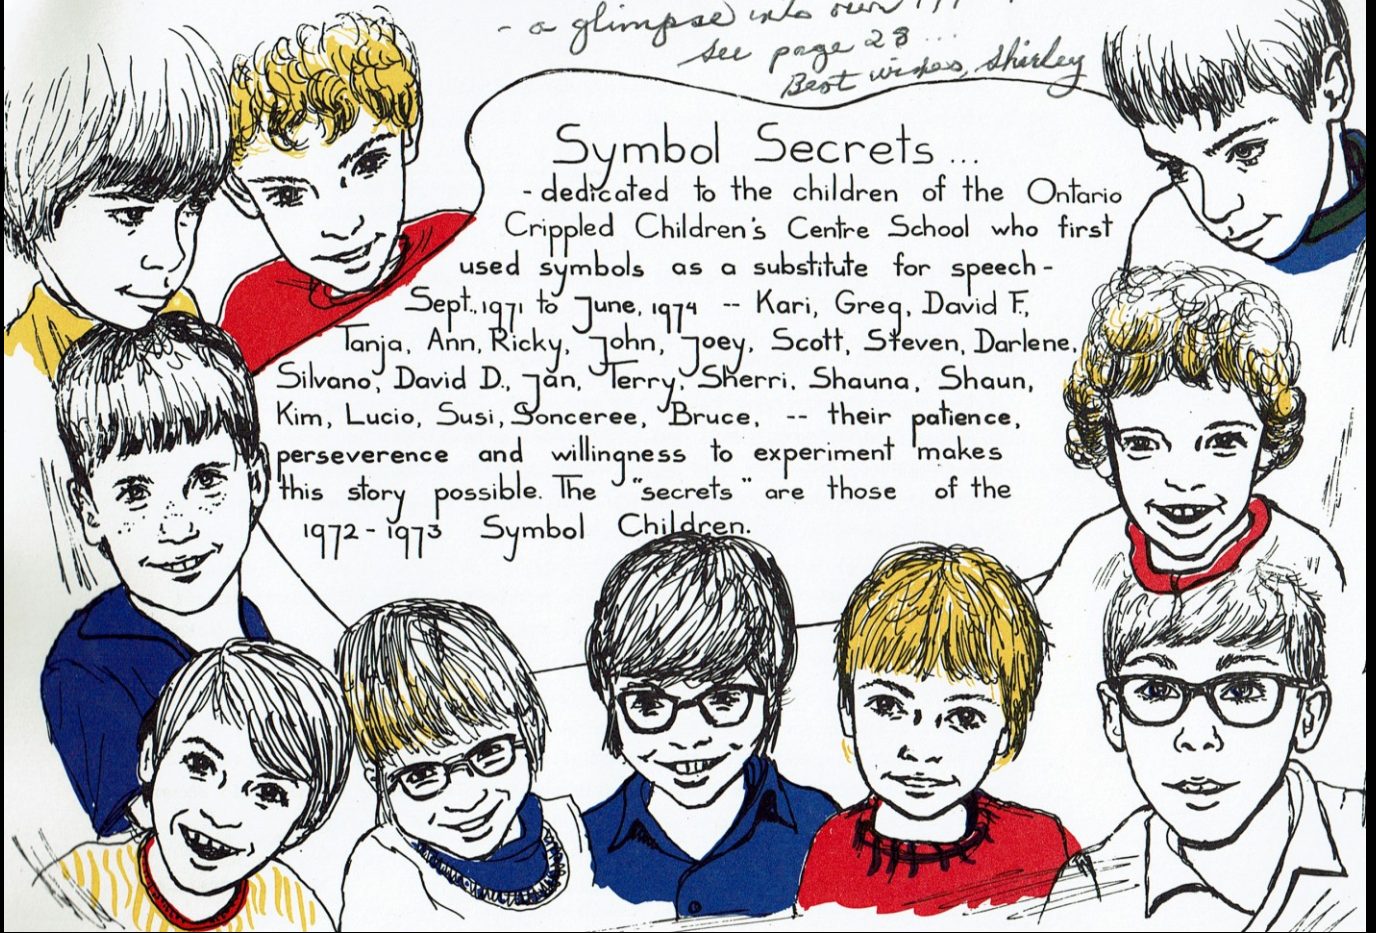 - a glimpse into our
see page 28 ...
Best wishes, Shirley
Symbol Secrets ...
- dedicated to the children of the Ontario
Crippled Children's Centre School who first
used symbols as a substitute for speech -
Sept., 1971 to June, 1974 -- Kari, Greg, David F.,
Tanja, Ann, Ricky, John, Joey, Scott, Steven, Darlene,
Silvano, David D., Jan, Terry, Sherri, Shauna, Shaun,
Kim, Lucio, Susi, Sonceree, Bruce, -- their patience,
perseverence and willingness to experiment makes
this story possible. The "secrets" are those of the
1972 - 1973 Symbol Children.